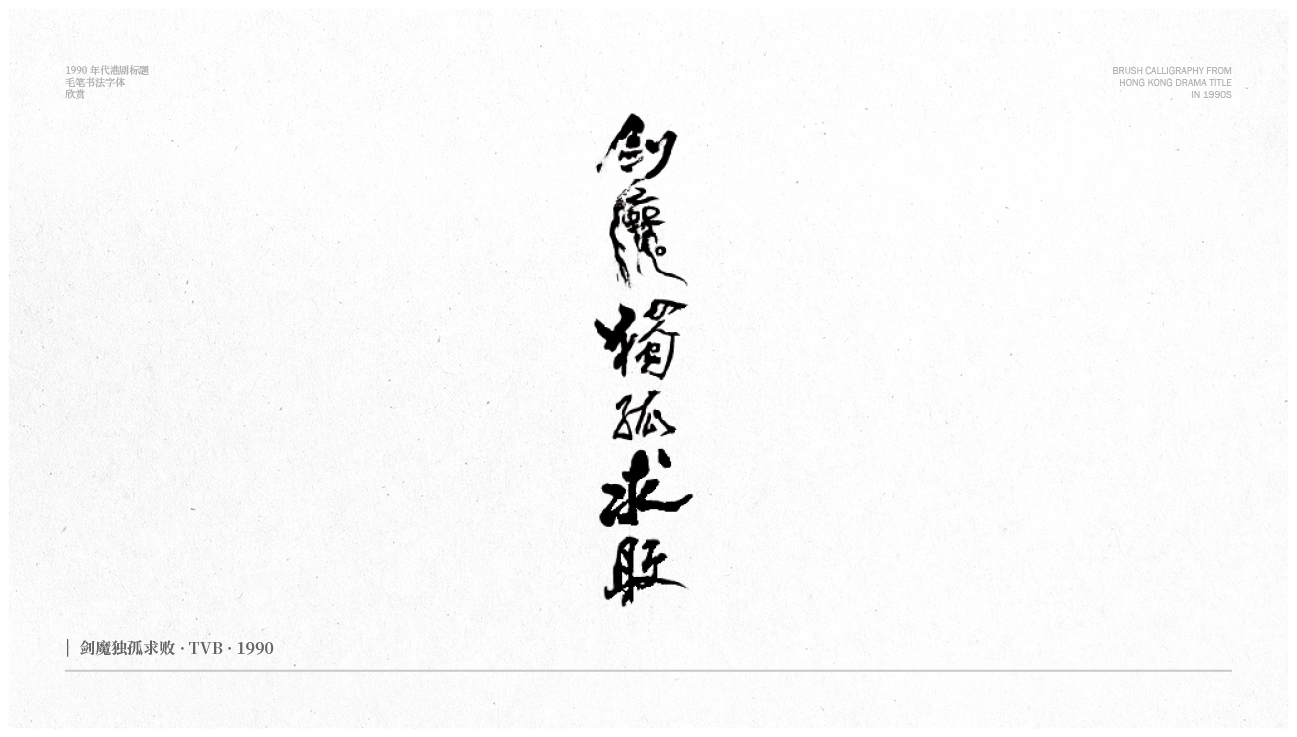 1990 年代港剧标题
毛笔书法字体
欣赏
BRUSH CALLIGRAPHY FROM
HONG KONG DRAMA TITLE
IN 1990S
劍魔獨孤求敗
剑魔独孤求败 · TVB · 1990